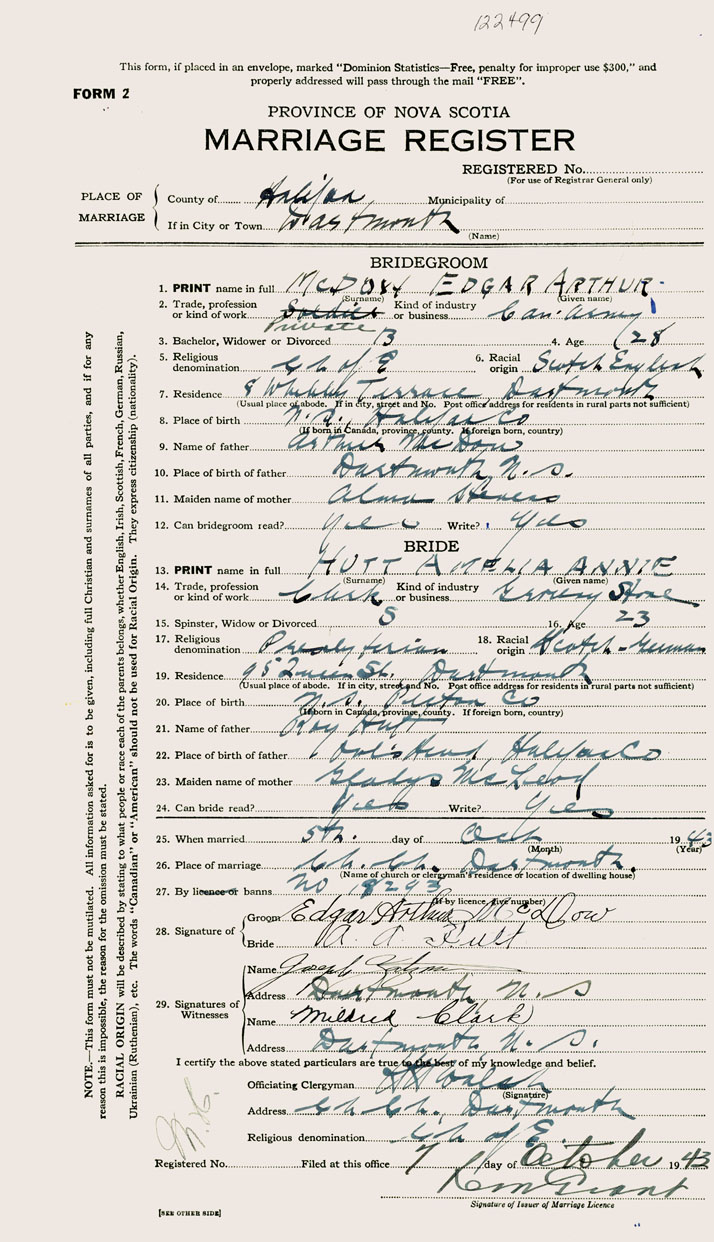 122499
This form, if placed in an envelope, marked "Dominion Statistics—Free, penalty for improper use $300," and
properly addressed will pass through the mail "FREE".
FORM 2
PROVINCE OF NOVA SCOTIA
MARRIAGE REGISTER
REGISTERED No.
(For use of Registrar General only)
PLACE OF MARRIAGE
County of Halifax Municipality of
If in City or Town Dartmouth
(Name)
BRIDEGROOM
1. PRINT name in full McDOW EDGAR ARTHUR
(Surname) (Given name)
2. Trade, profession or kind of work Soldier Private Kind of industry or business Can. Army
3. Bachelor, Widower or Divorced B 4. Age 28
5. Religious denomination Ch of E 6. Racial origin Scotch English
7. Residence 8 Terrace Dartmouth
(Usual place of abode. If in city, street and No. Post office address for residents in rural parts not sufficient)
8. Place of birth N.S. Halifax Co
(If born in Canada, province, county. If foreign born, country)
9. Name of father Arthur McDow
10. Place of birth of father Dartmouth, N.S.
11. Maiden name of mother Alma Stevens
12. Can bridegroom read? Yes Write? Yes
BRIDE
13. PRINT name in full HUTT AMELIA ANNIE
(Surname) (Given name)
14. Trade, profession or kind of work Clerk Kind of industry or business Grocery Store
15. Spinster, Widow or Divorced S 16. Age 23
17. Religious denomination Presbyterian 18. Racial origin Scotch-German
19. Residence 95 Queen St. Dartmouth
(Usual place of abode. If in city, street and No. Post office address for residents in rural parts not sufficient)
20. Place of birth N.S. Pictou Co
(If born in Canada, province, county. If foreign born, country)
21. Name of father Roy Hutt
22. Place of birth of father Head, Halifax Co
23. Maiden name of mother Gladys McLeod
24. Can bride read? Yes Write? Yes
25. When married 5th. day of Oct 1943
(Month) (Year)
26. Place of marriage Ch. Ch. Dartmouth.
(Name of church or clergyman's residence or location of dwelling house)
27. By licence or banns No 18293
(If by licence, give number)
28. Signature of
Groom Edgar Arthur McDow
Bride A. A. Hutt
29. Signatures of Witnesses
Name Joseph
Address Dartmouth N.S
Name Mildred Clark
Address Dartmouth, N.S.
I certify the above stated particulars are true to the best of my knowledge and belief.
Officiating Clergyman Walsh
(Signature)
Address Ch. Ch. Dartmouth
Religious denomination Ch of E.
Registered No. Filed at this office 7 day of October 1943
Grant
Signature of Issuer of Marriage Licence
[SEE OTHER SIDE]
NOTE.—This form must not be mutilated. All information asked for is to be given, including full Christian and surnames of all parties, and if for any
reason this is impossible, the reason for the omission must be stated.
RACIAL ORIGIN will be described by stating to what people or race each of the parents belongs, whether English, Irish, Scottish, French, German, Russian,
Ukrainian (Ruthenian), etc. The words "Canadian" or "American" should not be used for Racial Origin. They express citizenship (nationality).